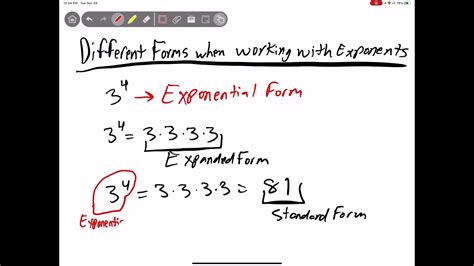 12:04 PM Tue Dec 29
Different Forms when working with Exponents
3⁴ → Exponential Form
3⁴ = 3·3·3·3
Expanded Form
3⁴ = 3·3·3·3 = 81
Exponentia
Standard Form